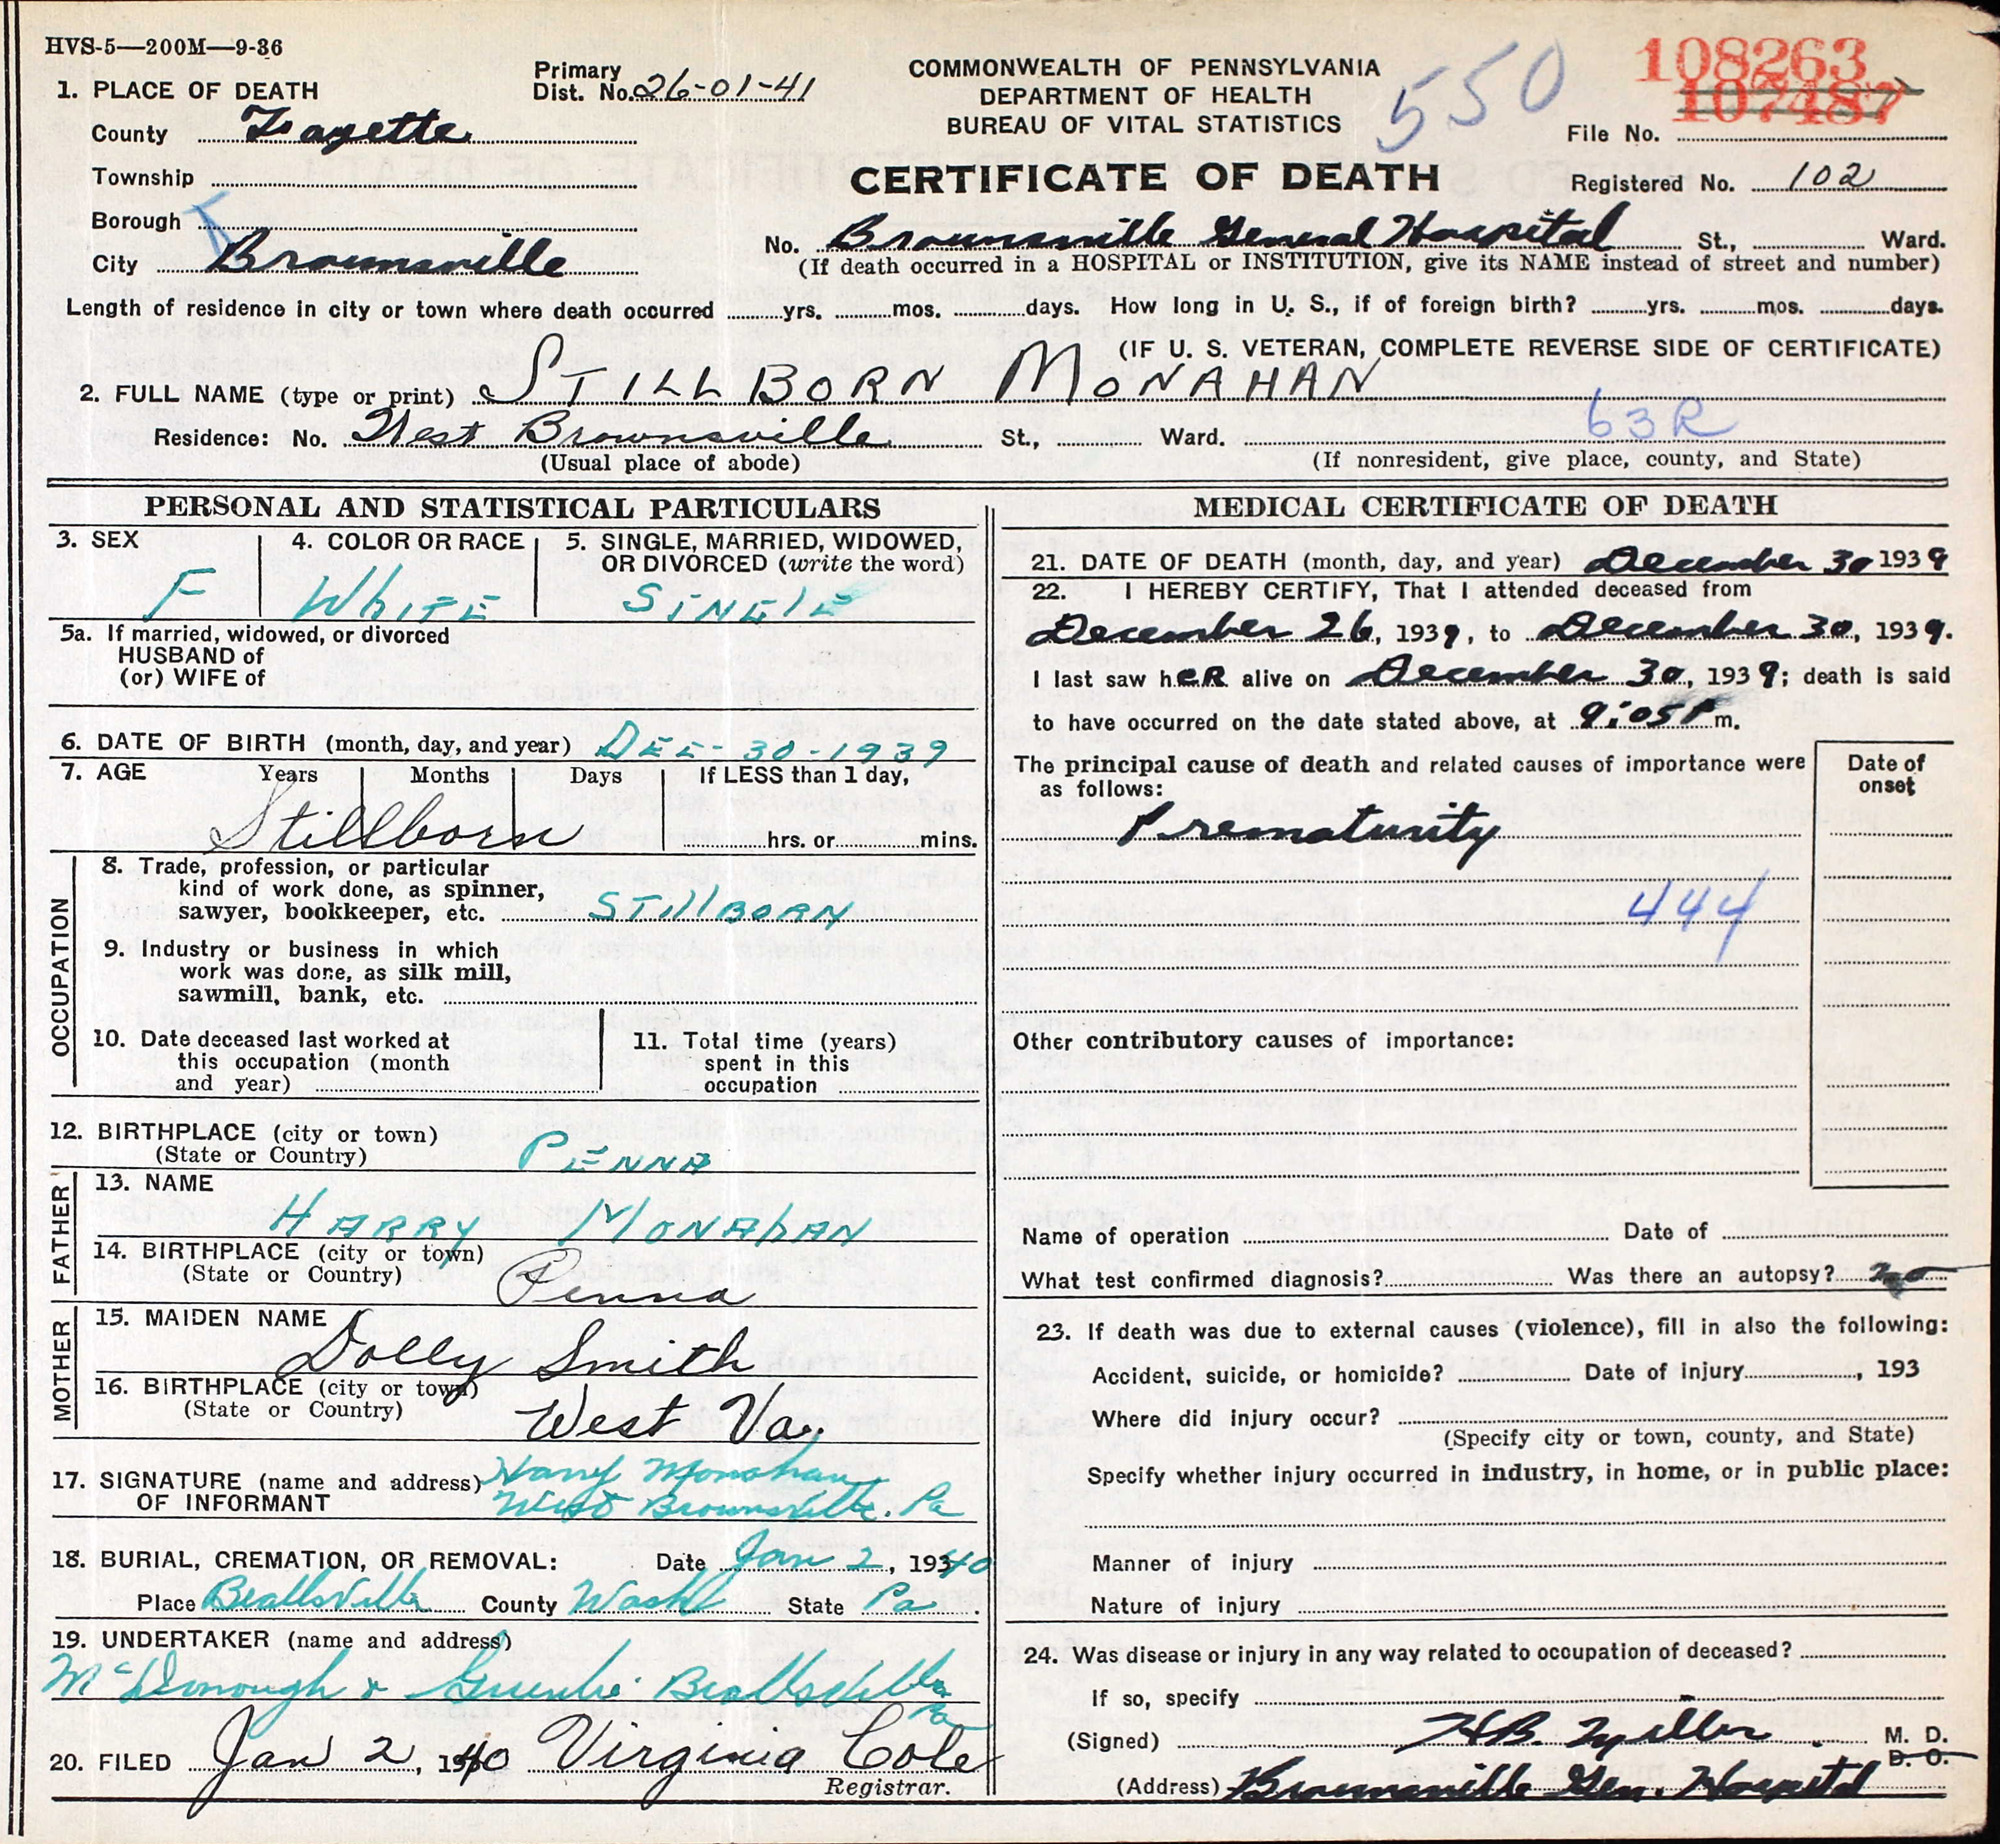 HVS-5—200M—9-36
1. PLACE OF DEATH
Primary Dist. No. 26-01-41
COMMONWEALTH OF PENNSYLVANIA
DEPARTMENT OF HEALTH
BUREAU OF VITAL STATISTICS
550
108263
107487
File No.
County Fayette
CERTIFICATE OF DEATH
Registered No. 102
Township
Borough
No. Brownsville General Hospital St., Ward.
City Brownsville
(If death occurred in a HOSPITAL or INSTITUTION, give its NAME instead of street and number)
Length of residence in city or town where death occurred yrs. mos. days. How long in U. S., if of foreign birth? yrs. mos. days.
(IF U. S. VETERAN, COMPLETE REVERSE SIDE OF CERTIFICATE)
2. FULL NAME (type or print) STILLBORN MONAHAN
63R
Residence: No. West Brownsville St., Ward.
(Usual place of abode) (If nonresident, give place, county, and State)
PERSONAL AND STATISTICAL PARTICULARS
3. SEX 4. COLOR OR RACE 5. SINGLE, MARRIED, WIDOWED,
OR DIVORCED (write the word)
F WHITE SINGLE
5a. If married, widowed, or divorced
HUSBAND of
(or) WIFE of
6. DATE OF BIRTH (month, day, and year) DEC-30-1939
7. AGE Years Months Days If LESS than 1 day,
Stillborn hrs. or mins.
OCCUPATION
8. Trade, profession, or particular
kind of work done, as spinner,
sawyer, bookkeeper, etc. STILLBORN
9. Industry or business in which
work was done, as silk mill,
sawmill, bank, etc.
10. Date deceased last worked at
this occupation (month
and year)
11. Total time (years)
spent in this
occupation
12. BIRTHPLACE (city or town)
(State or Country) PENNA
FATHER
13. NAME
HARRY MONAHAN
14. BIRTHPLACE (city or town)
(State or Country) Penna
MOTHER
15. MAIDEN NAME
Dolly Smith
16. BIRTHPLACE (city or town)
(State or Country) West Va.
17. SIGNATURE (name and address) Harry Monahan
OF INFORMANT West Brownsville. Pa
18. BURIAL, CREMATION, OR REMOVAL: Date Jan 2, 19340
Place Beallsville County Wash State Pa.
19. UNDERTAKER (name and address)
McDonough & Beallsville
Pa
20. FILED Jan 2, 1940 Virginia Cole
Registrar.
MEDICAL CERTIFICATE OF DEATH
21. DATE OF DEATH (month, day, and year) December 30 1939
22. I HEREBY CERTIFY, That I attended deceased from
December 26, 1939, to December 30, 1939.
I last saw hER alive on December 30, 1939; death is said
to have occurred on the date stated above, at 9:05 P m.
The principal cause of death and related causes of importance were
as follows:
Date of
onset
Prematurity
444
Other contributory causes of importance:
Name of operation Date of
What test confirmed diagnosis? Was there an autopsy? no
23. If death was due to external causes (violence), fill in also the following:
Accident, suicide, or homicide? Date of injury , 193
Where did injury occur?
(Specify city or town, county, and State)
Specify whether injury occurred in industry, in home, or in public place:
Manner of injury
Nature of injury
24. Was disease or injury in any way related to occupation of deceased?
If so, specify
(Signed) H.B. M. D.
D. O.
(Address) Brownsville Gen. Hospital